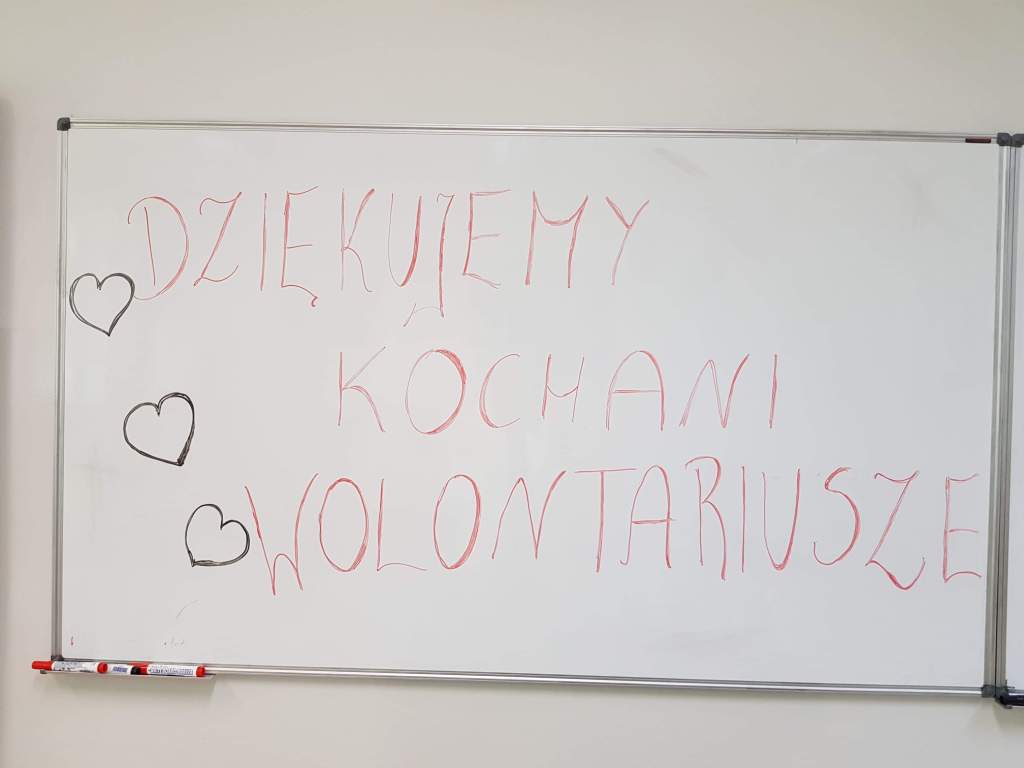 DZIĘKUJEMY
KOCHANI
WOLONTARIUSZE